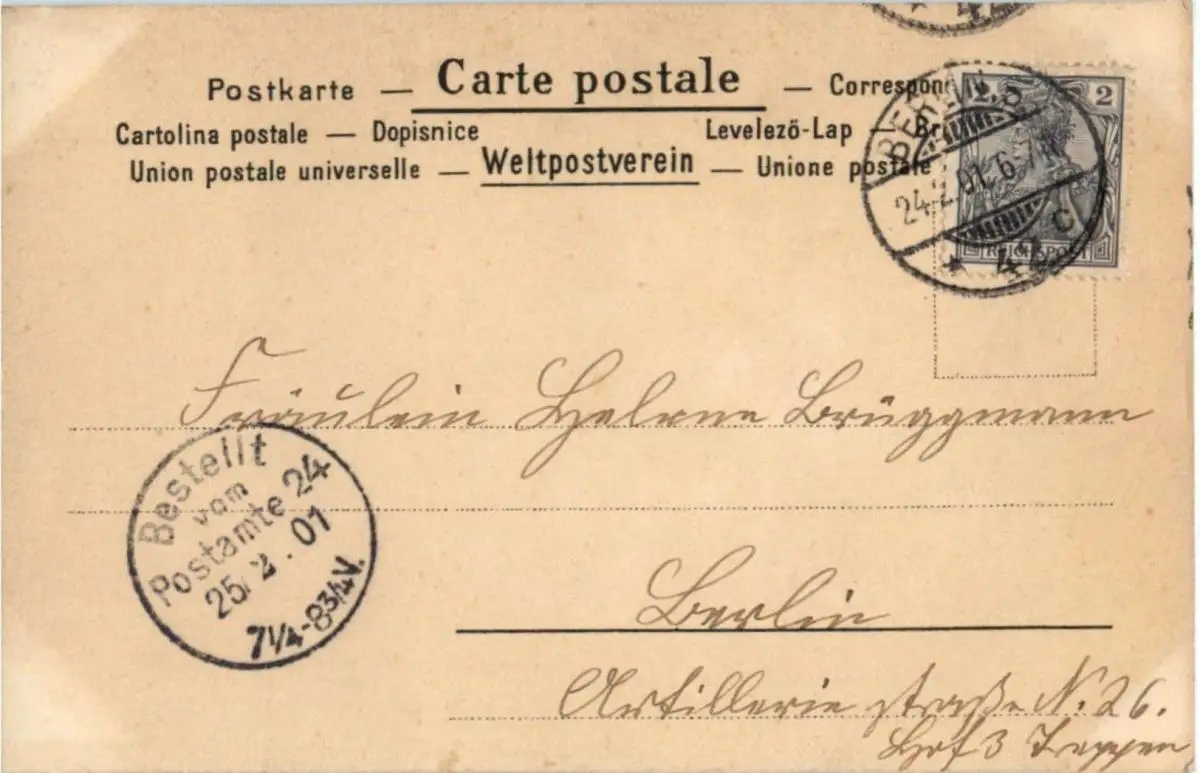 Postkarte — Carte postale — Correspon
Cartolina postale — Dopisnice Levelező-Lap — Br
Union postale universelle — Weltpostverein — Unione postale
2
REICHSPOST
BERLIN, S.
24.2.01. 6-7N.
* 42 c
* 42
Fräulein Helene Brüggmann
Bestellt
vom
Postamte 24
25. 2. 01
7¼-8¾V.
Berlin
Artilleriestraße N. 26.
Hof 3 Treppen